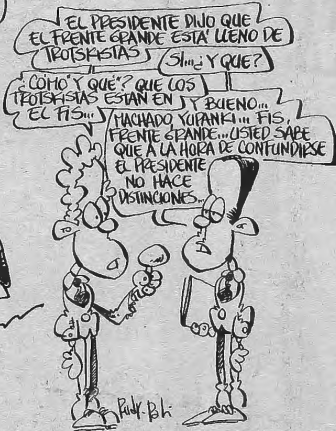 EL PRESIDENTE DIJO QUE
EL FRENTE GRANDE ESTA' LLENO DE
TROTSKISTAS
SI...¿Y QUE?
¿COMO "Y QUE"? QUE LOS
TROTSKISTAS ESTAN EN
EL FIS...
Y BUENO...
MACHADO YUPANKI... FIS,
FRENTE GRANDE... USTED SABE
QUE A LA HORA DE CONFUNDIRSE
EL PRESIDENTE
NO HACE
DISTINCIONES...
Rudy-Pati